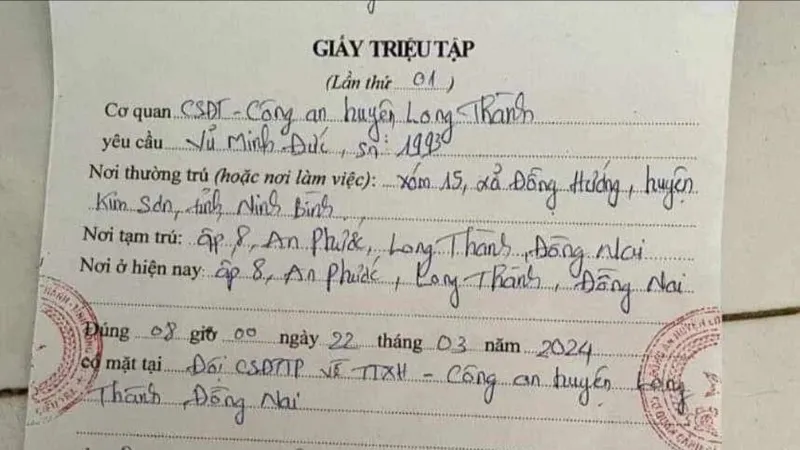 GIẤY TRIỆU TẬP
(Lần thứ 01)
Cơ quan CSĐT - Công an huyện Long Thành
yêu cầu Vũ Minh Đức, sn: 1993
Nơi thường trú (hoặc nơi làm việc): xóm 15, xã Đồng Hướng, huyện
Kim Sơn, tỉnh Ninh Bình,
Nơi tạm trú: ấp 8, An Phước, Long Thành, Đồng Nai
Nơi ở hiện nay: ấp 8, An Phước, Long Thành, Đồng Nai
Đúng 08 giờ 00 ngày 22 tháng 03 năm 2024
có mặt tại Đội CSĐTTP về TTXH - Công an huyện Long
Thành, Đồng Nai